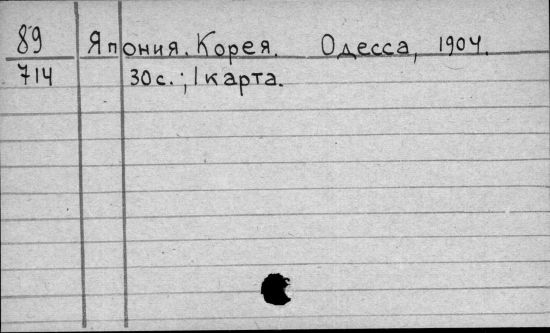 89 Япония. Корея. Одесса, 1904.
714 30 с.; 1 карта.